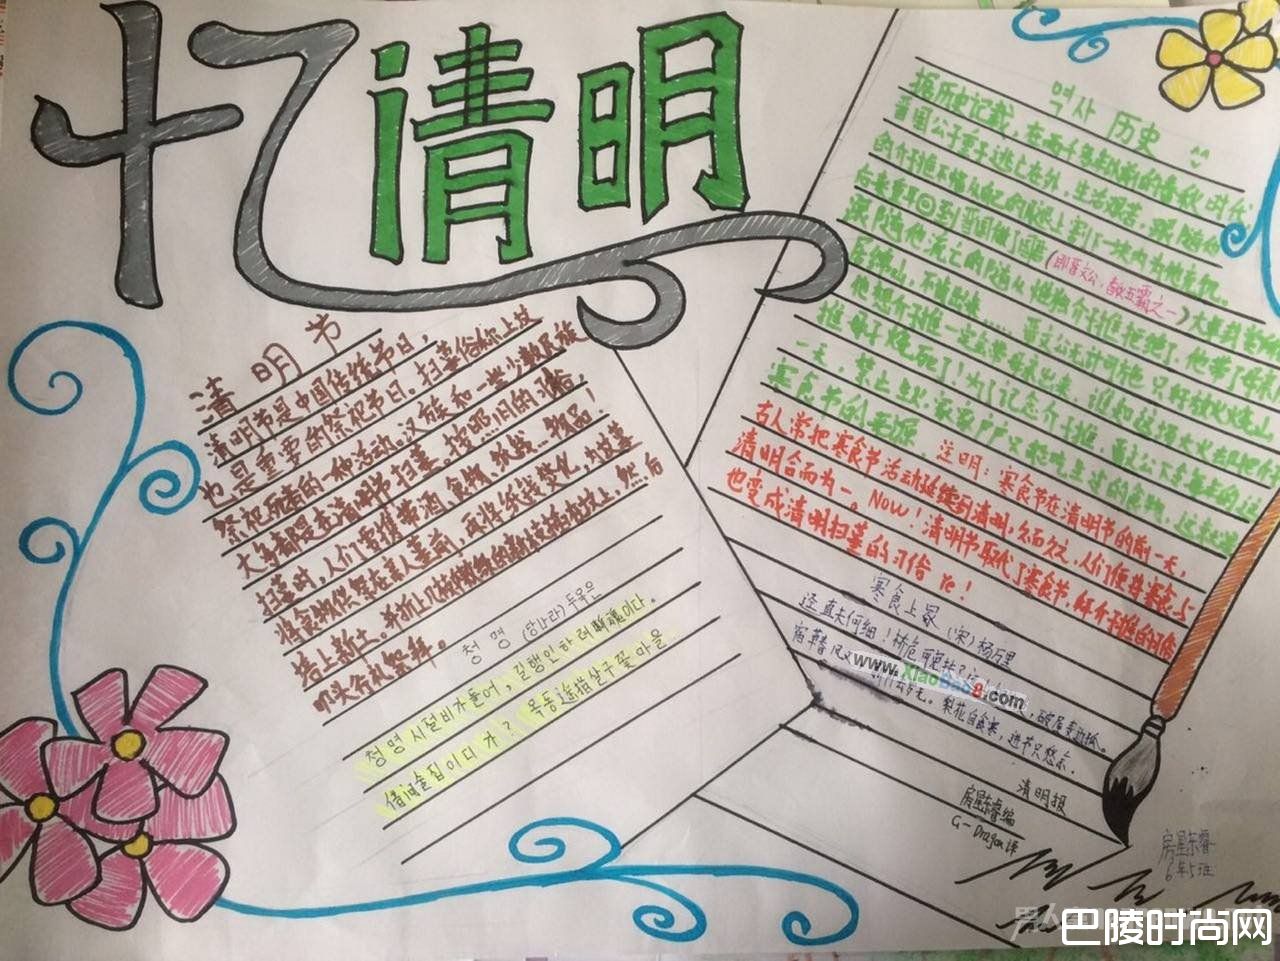 忆清明
清明节
清明节是中国传统节日，
也是重要的祭祀节日。扫墓俗称上坟
祭祀死者的一种活动。汉族和一些少数民族
大多都是在清明节扫墓。按照旧的习俗，
扫墓时，人们要携带酒食物，纸钱…物品！
将食物供祭在亲人墓前，再将纸钱焚化，为坟墓
培上新土。并折上几枝嫩绿的新枝插在坟上，然后
叩头行礼祭拜。
청명 (당나라) 두목은
청명시절비자들어，길행인하려断魂이다。
借问술집이디가？목동遥指살구꽃마을
역사 历史
据历史记载，在两千多年以前的春秋时代
晋国公子重耳逃亡在外，生活艰苦，跟随他
的介子推不惜从自己的腿上割下一块肉为他充饥。
后来重耳回到晋国做了国君(即晋文公，春秋五霸之一)大事封赏所有
跟随他流亡的随从惟独介子推拒绝了，他带了母亲
居绵山，不肯出来……晋文公无计可施，只好放火烧山
他想介子推一定会带母亲出来。谁知这场大火却把介
推母子烧死了！为了记念介子推，晋文公下令每年的这
一天，禁止生火，家家户户只能吃生冷的食物，这来
寒食节的来源。
注明：寒食节在清明节的前一天，
古人常把寒食节活动延续到清明，久而久之，人们便将寒食与
清明合而为一。Now！清明节取代了寒食节，拜介子推的习俗
也变成清明扫墓的习俗 Ye！
寒食上冢 (宋)杨万里
迳直夫何细！桥危可更扶？
宿草春风又，新阡去岁无。梨花自寒食，进节只愁余。
www.XiaoBao8.com
清明报
房星东睿编
G-Dragon译
房星东睿
6年5班
巴陵时尚网